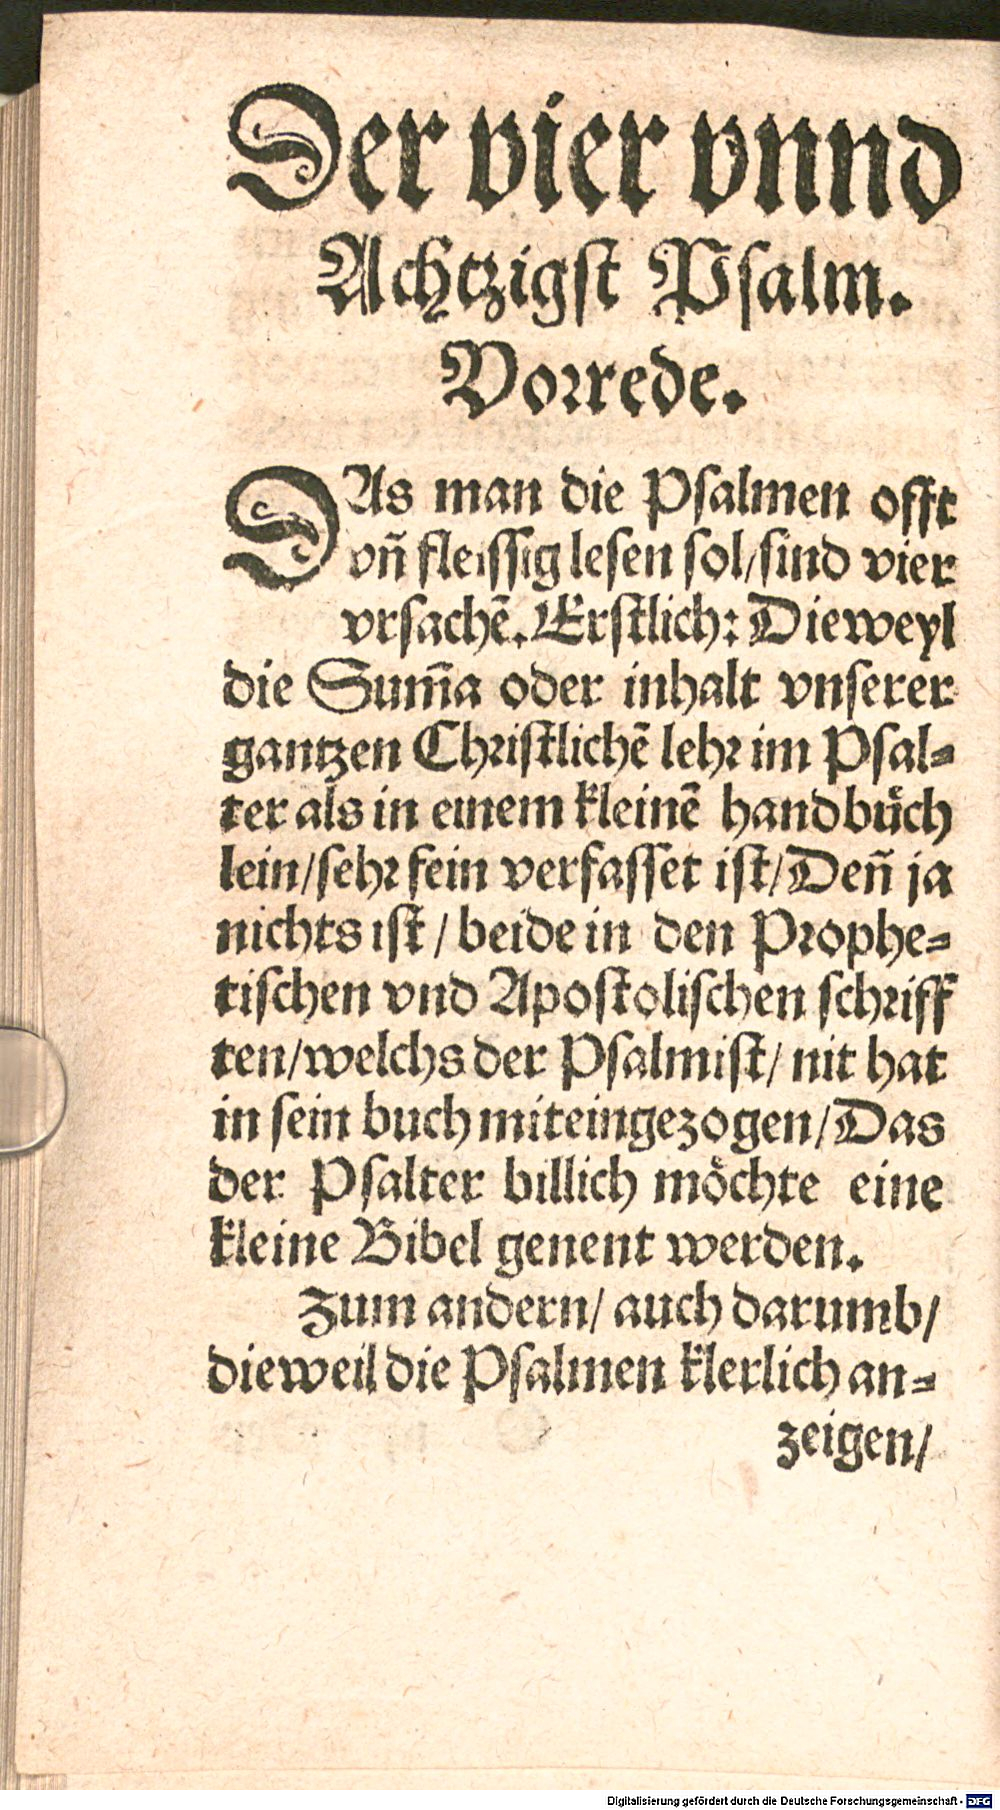 Der vier vnnd
Achtzigſt Pſalm.
Vorrede.
DAs man die Pſalmen offt
vñ fleiſſig leſen ſol/ſind vier
vrſachẽ. Erſtlich: Dieweyl
die Sum̃a oder inhalt vnſerer
gantzen Chriſtlichẽ lehr im Pſal⸗
ter als in einem kleinẽ handbuͤch
lein/ſehr fein verfaſſet iſt/Deñ ja
nichts iſt / beide in den Prophe⸗
tiſchen vnd Apoſtoliſchen ſchriff
ten/welchs der Pſalmiſt/ nit hat
in ſein buch miteingezogen/Das
der Pſalter billich moͤchte eine
kleine Bibel genent werden.
Zum andern/ auch darumb/
dieweil die Pſalmen klerlich an⸗
zeigen/
Digitalisierung gefördert durch die Deutsche Forschungsgemeinschaft - DFG